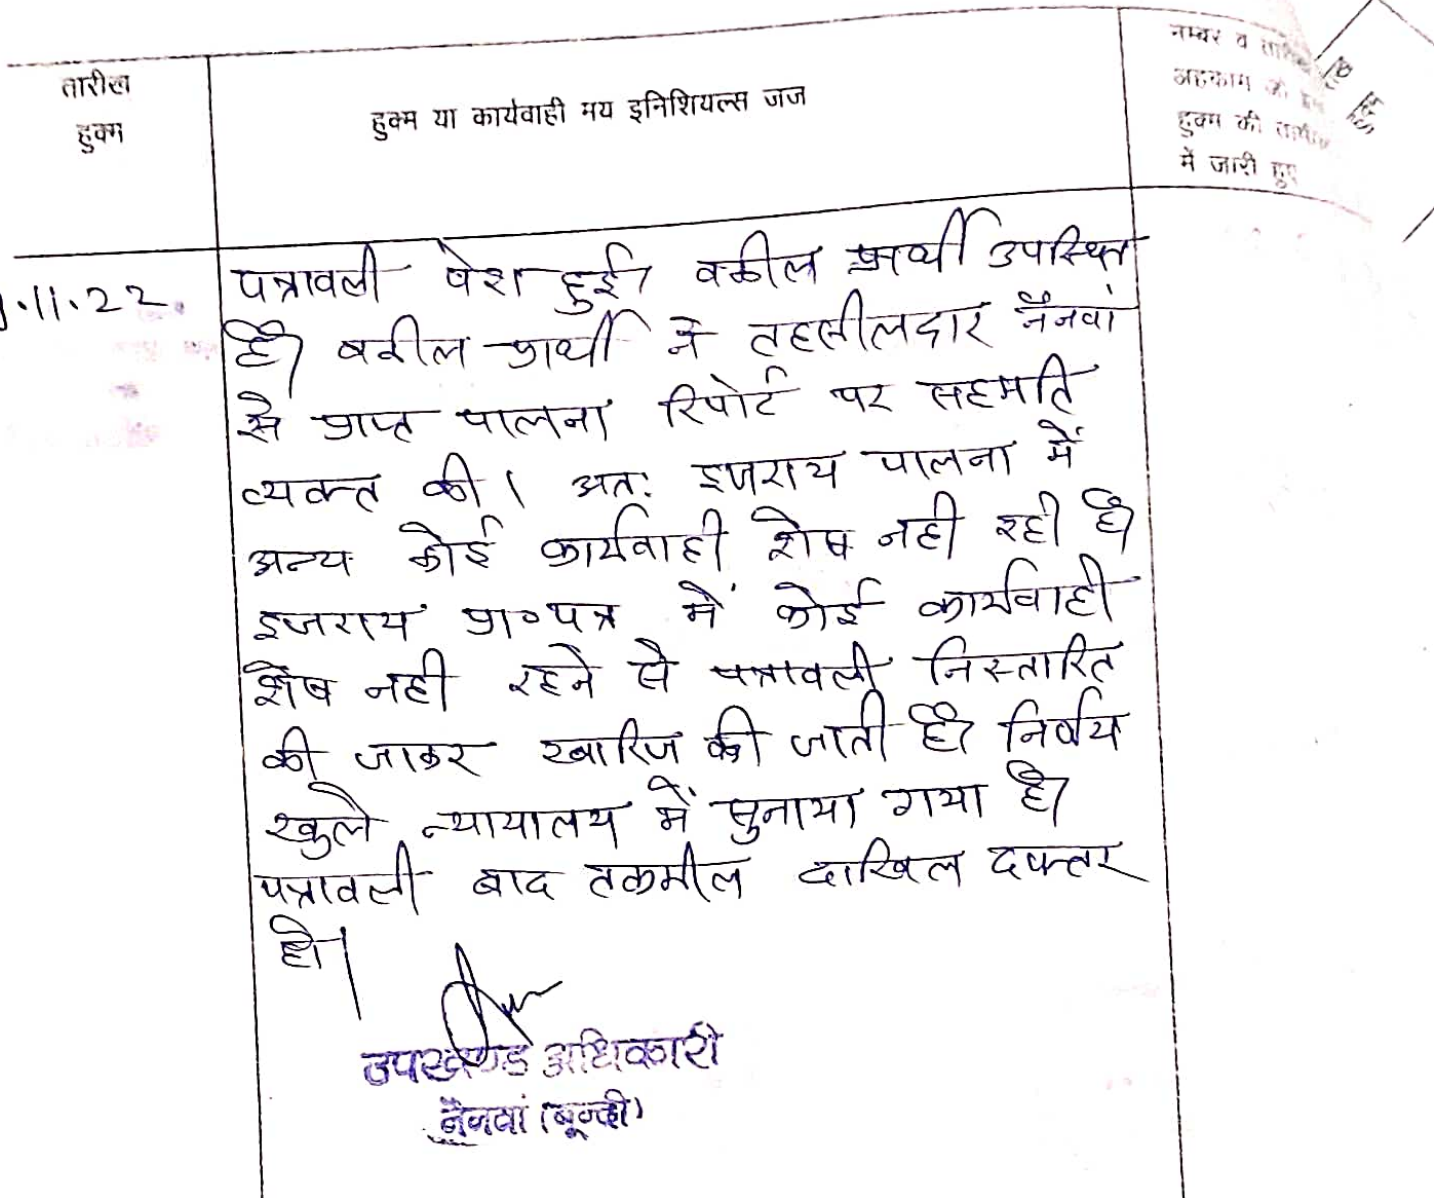 तारीख
हुक्म
हुक्म या कार्यवाही मय इनिशियल्स जज
नम्बर व
अहकाम जो इस
हुक्म की तामील
में जारी हुए
.11.22
पत्रावली पेश हुई। वकील प्रार्थी उपस्थित
है। वकील प्रार्थी ने तहसीलदार नैनवां
से प्राप्त पालना रिपोर्ट पर सहमति
व्यक्त की। अतः इजराय पालना में
अन्य कोई कार्यवाही शेष नही रही है।
इजराय प्रा०पत्र में कोई कार्यवाही
शेष नही रहने से पत्रावली निस्तारित
की जाकर खारिज की जाती है। निर्णय
खुले न्यायालय में सुनाया गया है।
पत्रावली बाद तकमील दाखिल दफ्तर
हो।
उपखण्ड अधिकारी
नैनवां (बून्दी)